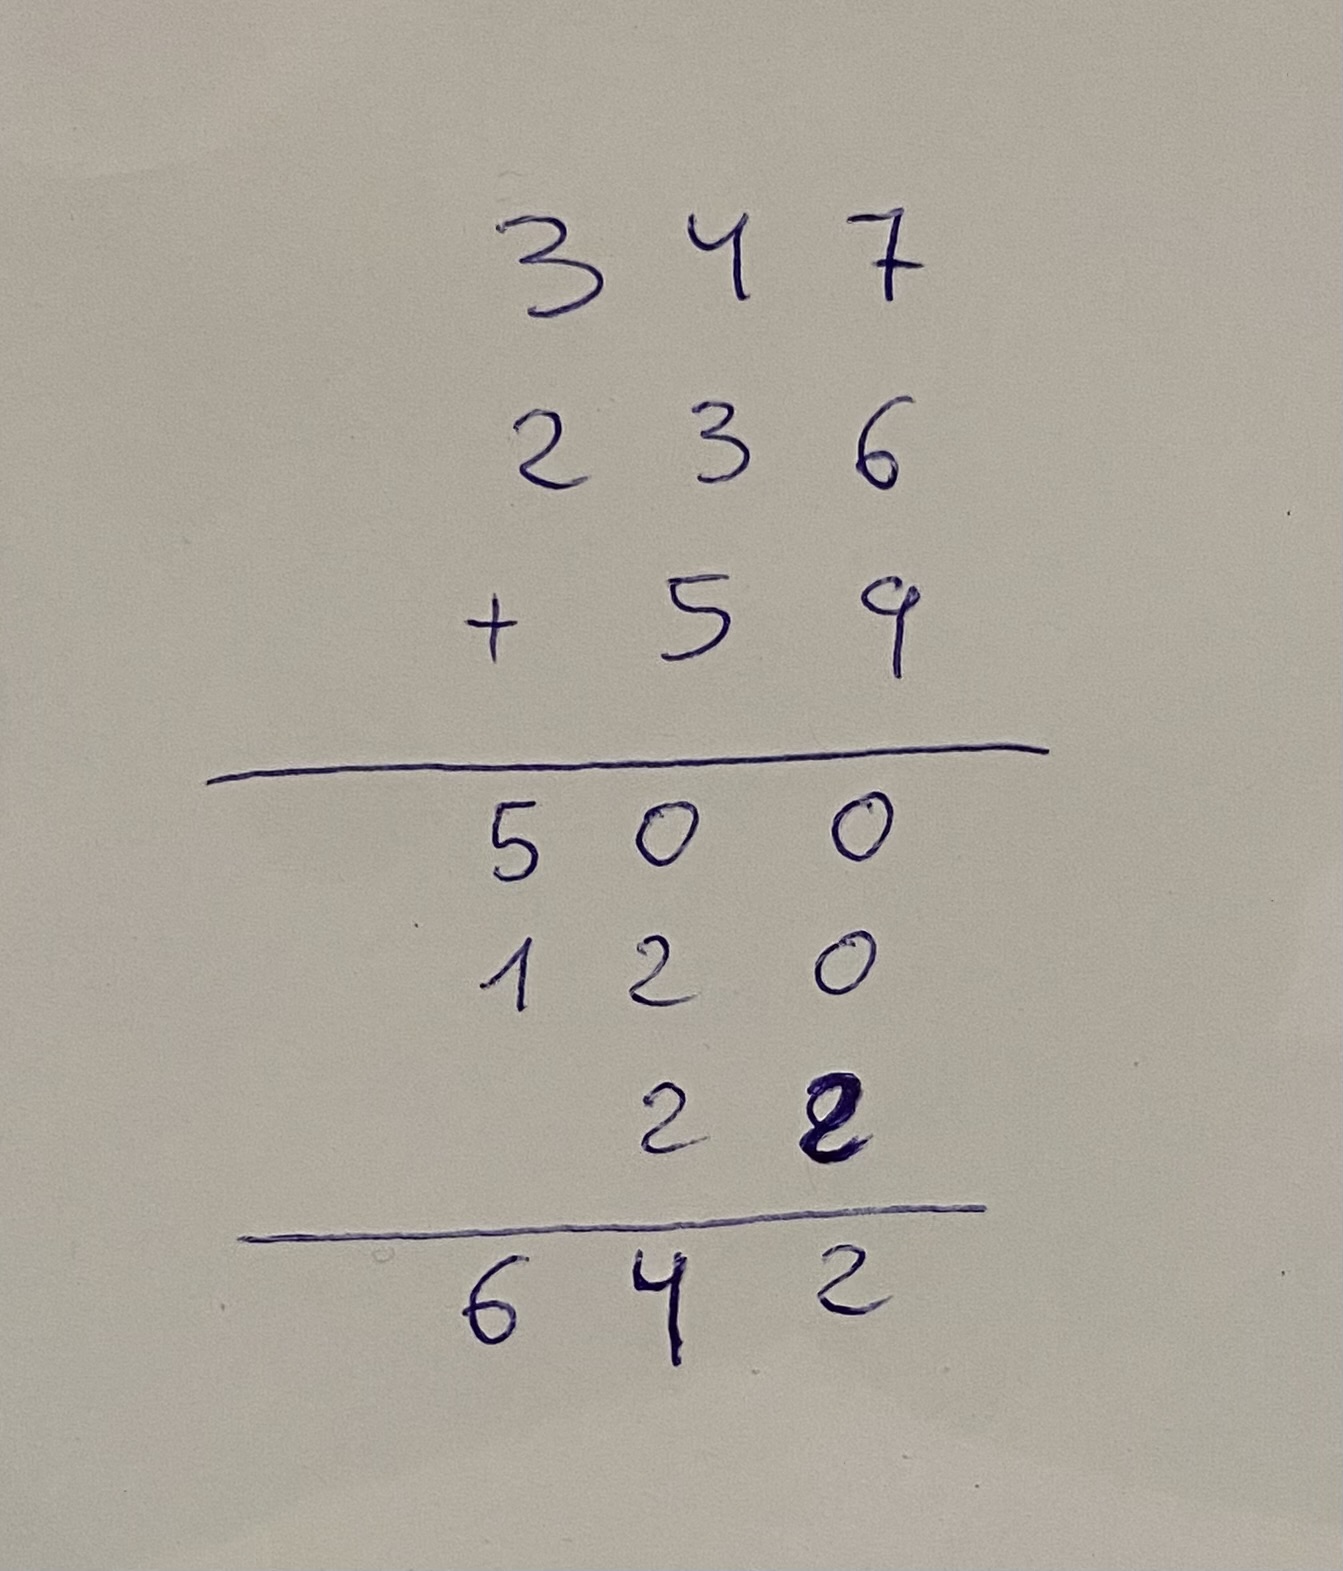 3 4 7
2 3 6
+ 5 9
5 0 0
1 2 0
2 2
6 4 2